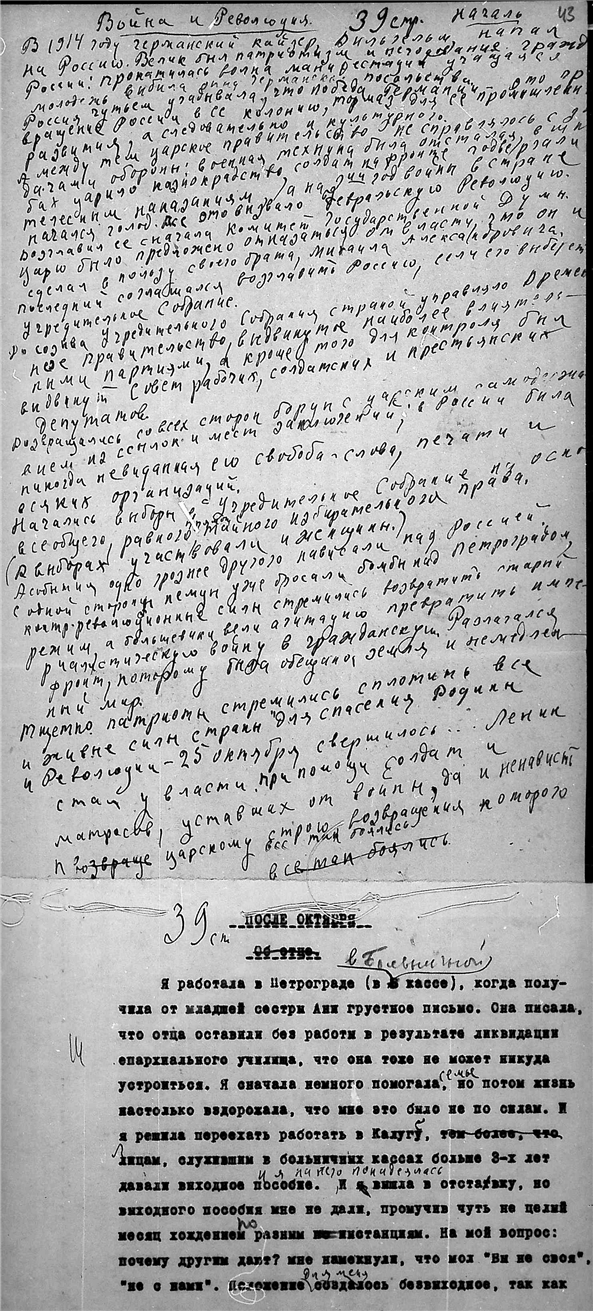 Война и Революция. 39 стр. началь 43
В 1914 году германский кайзер, Вильгельм, напал
на Россию. Велик был патриотизм и негодование гражд
России: прокатилась волна манифестаций, учащаяся
молодежь била германского посольства.
Россия чутьем угадывала, что победа Германии это пр
вращение России в ее колонию, тормаз для ее промышлен.
развития, а следовательно и культурного.
А между тем царское правительство не справлялось с за
дачами обороны: военная техника была отсталая, в шта
бах царило казнокрадство, солдат на фронте подвергали
телесным наказаниям, а на год войны в стране
начался голод. Все это вызвало Февральскую Революцию.
Возглавил ее сначала Комитет Государственной Думы.
Царю было предложено отказаться от власти, что он и
сделал в пользу своего брата, Михаила Александровича.
Последний соглашался возглавить Россию, если его выберет
Учредительное Собрание.
До созыва Учредительного Собрания страной управляло Времен
ное Правительство, выдвинутое наиболее влиятель-
ными партиями, а кроме того для контроля был
выдвинут Совет рабочих, солдатских и крестьянских
Депутатов.
Возвращались со всех сторон борцы с царским самодержа
вием из ссылок и мест заключений; в России была
никогда невиданная ею свобода - слова, печати и
всяких организаций.
Начались выборы в Учредительное Собрание на осно
всеобщего, равного, тайного избирательного права.
(В выборах участвовали и женщины.)
А события одно грознее другого нависали над Россией.
С одной стороны, немцы уже бросали бомбы над Петроградом,
контр-революционные силы стремились возвратить старый
режим, а большевики вели агитацию превратить импе-
риалистическую войну в гражданскую. Разлагался
фронт, которому была обещана земля и немедлен-
ный мир.
Тщетно патриоты стремились сплотить все
и живые силы страны для спасения Родины
и Революции – 25 октября свершилось... Ленин
стал у власти при помощи солдат и
матросов, уставших от войны, да и ненависть
к возвраще царскому строю, возвращения которого
все так боялись
все так боялись.
39 ст ПОСЛЕ ОКТЯБРЯ
Об отце.
в Больничной
Я работала в Петрограде (в Б кассе), когда полу-
чила от младшей сестры Ани грустное письмо. Она писала,
что отца оставили без работы в результате ликвидации
епархиального училища, что она тоже не может никуда
устроиться. Я сначала немного помогала семье, но потом жизнь
настолько вздорожала, что мне это было не по силам. И
я решила переехать работать в Калугу, тем более, что
Лицам, служившим в больничных кассах больше 3-х лет
давали выходное пособие. и я на него понадеялась
И я вышла в отставку, но
выходного пособия мне не дали, промучив чуть не целый
месяц хождением по разным инстанциям. На мой вопрос:
почему другим дают? мне намекнули, что мол "Вы не своя",
"не с нами". Положение для меня создалось безвиходное, так как